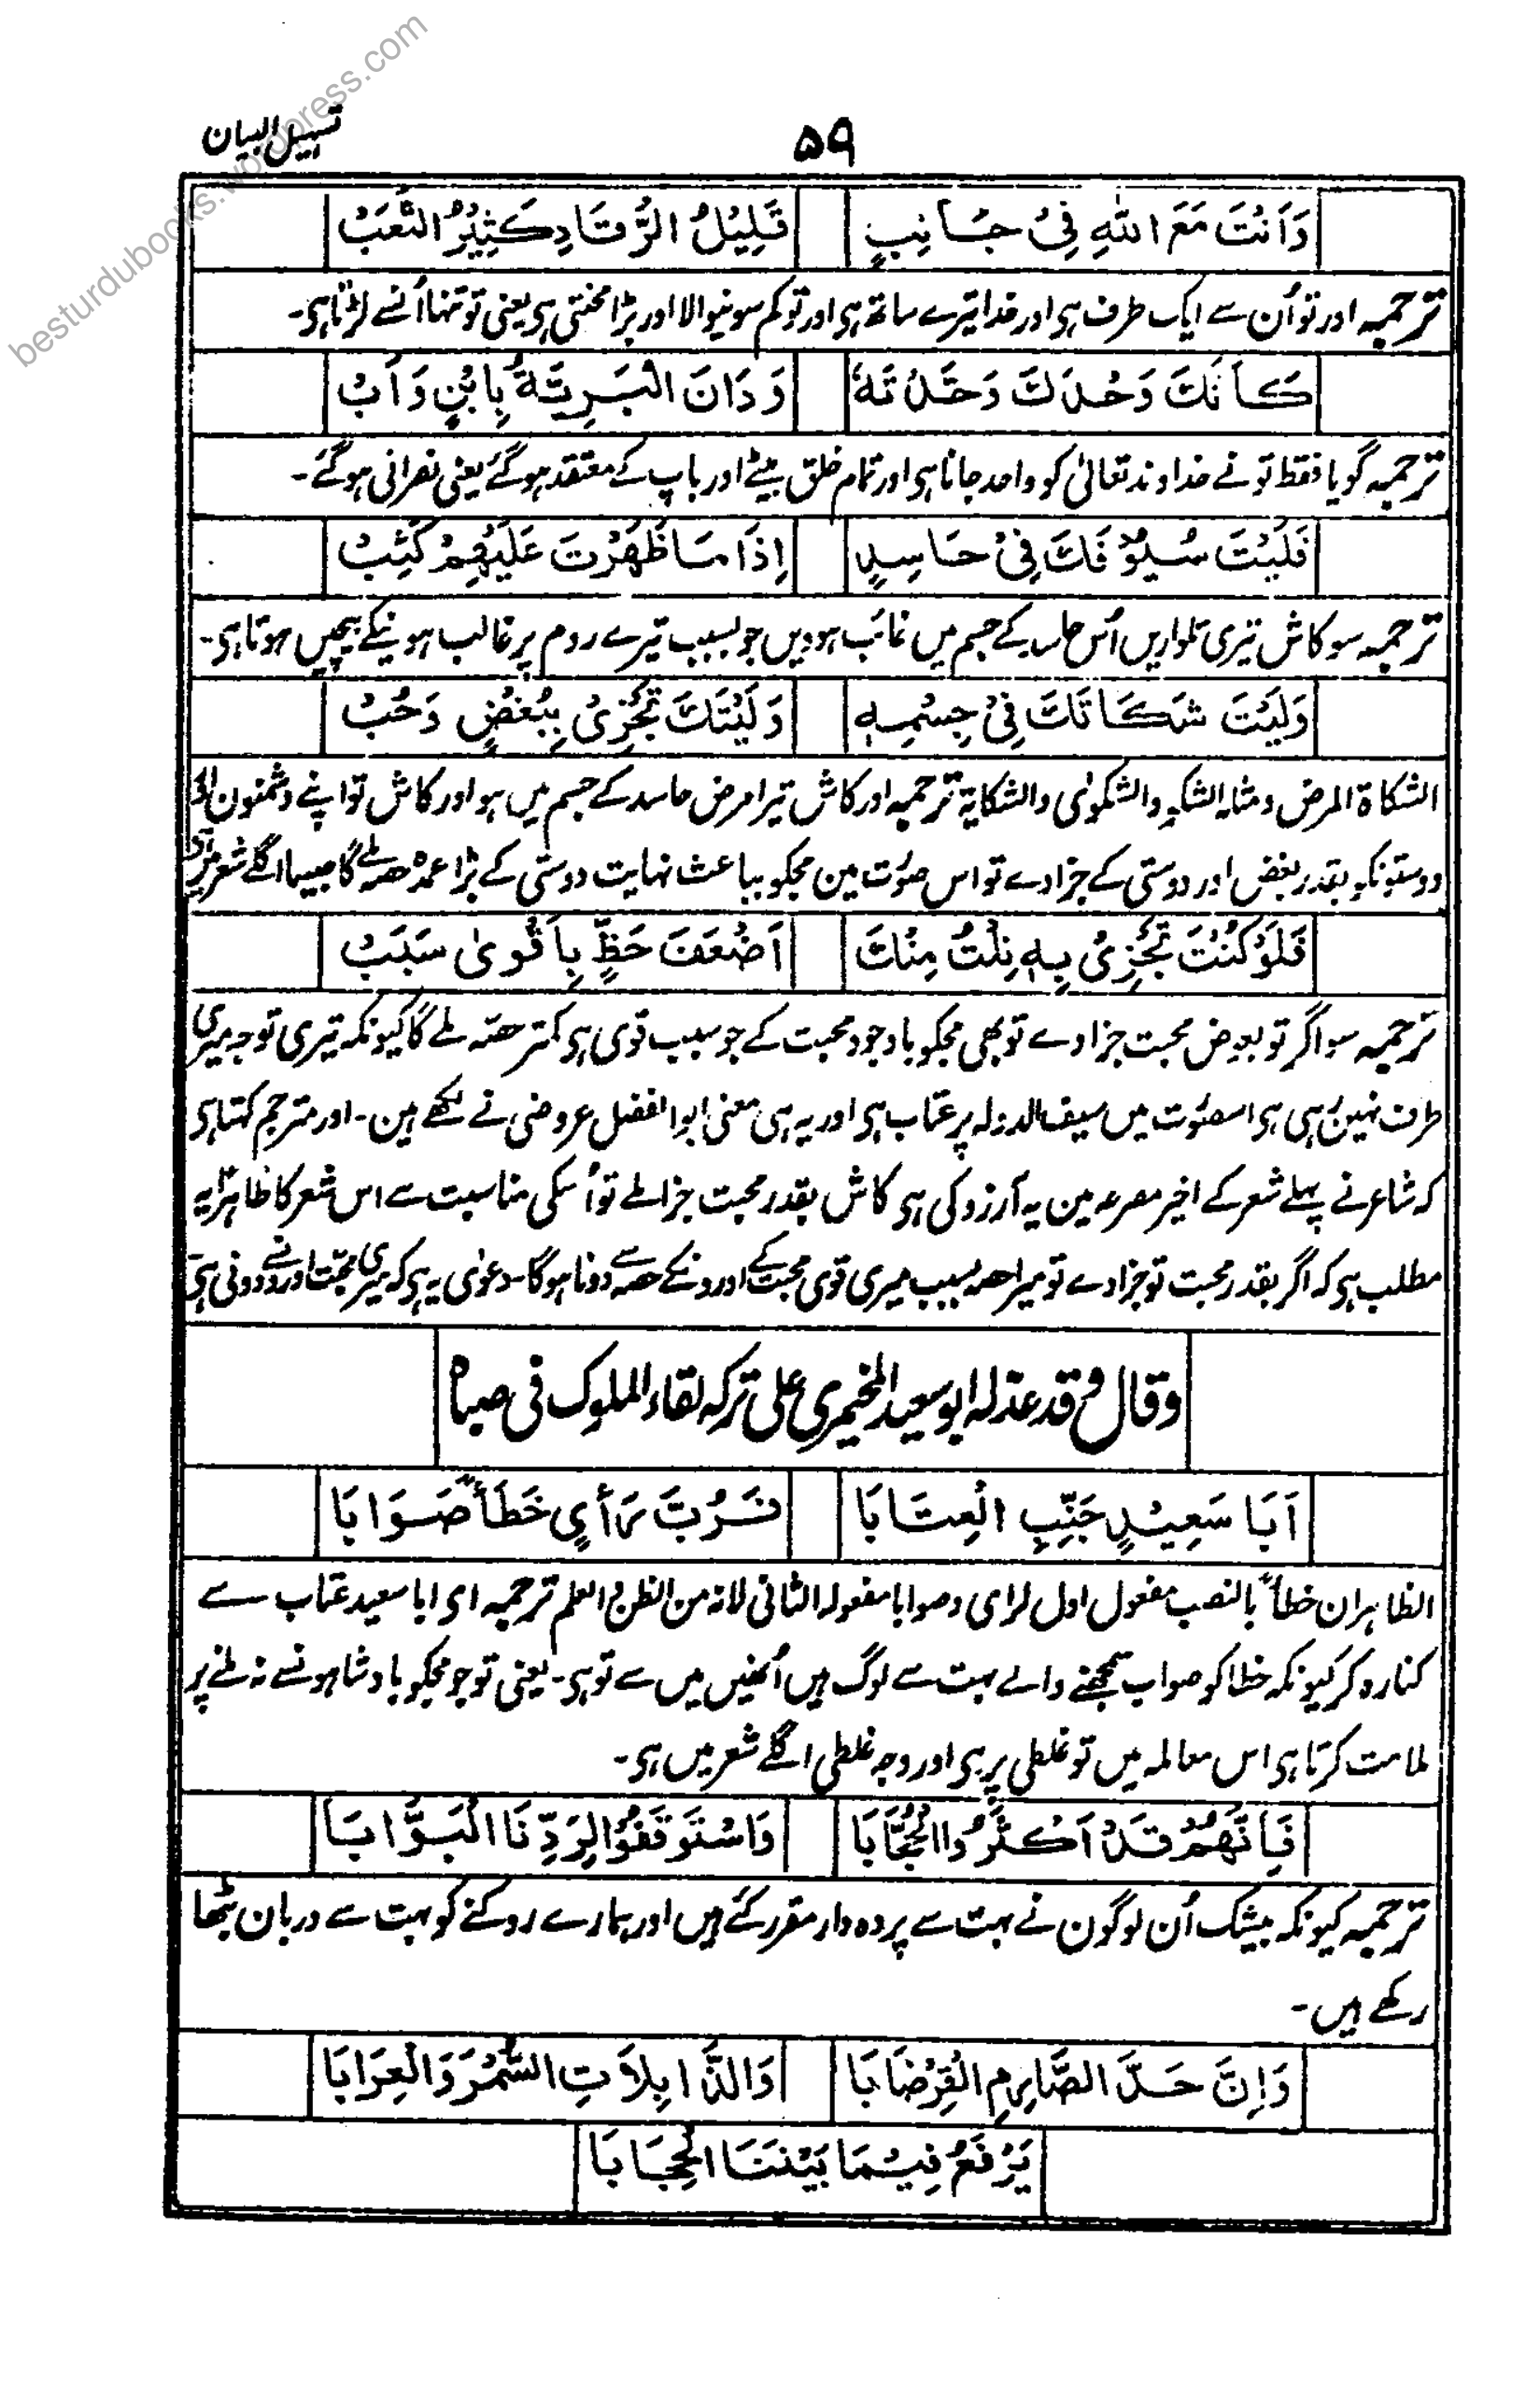 تسہیل البیان
۵۹
وَاَنْتَ مَعَ اللهِ فِیْ جَانِبٍ قَلِیْلُ الرُّقَادِ كَثِیْرُ التَّعَبْ
ترجمہ اور تو اُن سے ایک طرف ہی اور خدا تیرے ساتھ ہی اور تو کم سونیوالا اور بڑا محنتی ہی یعنی تو تنہا اُنسے لڑتا ہی۔
كَاَنَّكَ وَحْدَكَ وَحَّدْتَهٗ وَدَانَ الْبَرِیَّةُ بِابْنٍ وَاَبْ
ترجمہ گویا فقط تو نے خداوند تعالیٰ کو واحد جانا ہی اور تمام خلق بیٹے اور باپ کے معتقد ہو گئے یعنی نصرانی ہو گئے۔
فَلَیْتَ سُیُوْفَكَ فِیْ حَاسِدٍ اِذَا مَا ظَهَرْتَ عَلَیْهِمْ كَئِبْ
ترجمہ سو کاش تیری تلواریں اُس حاسد کے جسم میں غائب ہوویں جو بسبب تیرے روم پر غالب ہونیکے بیچیں ہوتا ہی۔
وَلَیْتَ شَكَاتَكَ فِیْ جِسْمِهٖ وَلَیْتَكَ تَجْزِیْ بِبُغْضٍ وَحُبْ
الشکاۃ المرض ومثلہ الشکو والشکوٰی والشکایۃ ترجمہ اور کاش تیرا مرض حاسد کے جسم میں ہو اور کاش تو اپنے دشمنون اور
دوستونکو بقدر بغض اور دوستی کے جزا دے تو اس صورت مین مجکو بباعث نہایت دوستی کے بڑا عمدہ حصہ ملے گا جیسا اگلے شعر میں
فَلَوْ كُنْتَ تَجْزِیْ بِهٖ نِلْتُ مِنْكَ اَضْعَفَ حَظٍّ بِاَقْوٰی سَبَبْ
ترجمہ سو اگر تو بعوض محبت جزا دے تو بھی مجکو باوجود محبت کے جو سبب قوی ہی کمتر حصہ ملے گا کیونکہ تیری توجہ میری
طرف نہین رہی ہی اسصورت میں سیف الدولہ پر عتاب ہی اور یہ ہی معنی ابو الفضل عروضی نے لکھے ہین۔ اور مترجم کہتا ہی
کہ شاعر نے پہلے شعر کے اخیر مصرعہ مین یہ آرزو کی ہی کاش بقدر محبت جزا ملے تو اُسکی مناسبت سے اس شعر کا ظاہرًا یہ
مطلب ہی کہ اگر بقدر محبت تو جزا دے تو میرا حصہ بسبب میری قوی محبت کے اورونکے حصہ سے دونا ہوگا۔ دعوٰی یہ ہی کہ میری محبت اورونسے دونی ہی
وقال و قد عذلہ ابو سعید المخیمری علی ترکہ لقاء الملوک فی صباہ
اَبَا سَعِیْدٍ جَنِّبِ الْعِتَابَا فَرُبَّ رَاْیٍ خَطَأً صَوَابَا
الظاہر ان خطأً بالنصب مفعول اول لرای وصوابا مفعولہ الثانی لانہ من الظن و العلم ترجمہ ای ابا سعید عتاب سے
کنارہ کر کیونکہ خطا کو صواب سمجھنے والے بہت سے لوگ ہیں اُنہیں میں سے تو ہی۔ یعنی تو جو مجکو بادشاہونسے نہ ملنے پر
ملامت کرتا ہی اس معاملہ میں تو غلطی پر ہی اور وجہ غلطی اگلے شعر میں ہی۔
فَاِنَّهُمْ قَدْ اَكْثَرُوا الْحُجَّابَا وَاسْتَوْقَفُوْا لِرَدِّنَا الْبَوَّابَا
ترجمہ کیونکہ بیشک اُن لوگون نے بہت سے پردہ دار مقرر کئے ہیں اور ہمارے روکنے کو بہت سے دربان بٹھا
رکھے ہیں۔
وَاِنَّ حَدَّ الصَّارِمِ الْقِرْضَابَا وَالذَّابِلَاتِ السُّمْرَ وَالْعِرَابَا
یَرْفَعُ فِیْمَا بَیْنَنَا الْحِجَابَا
besturdubooks.wordpress.com